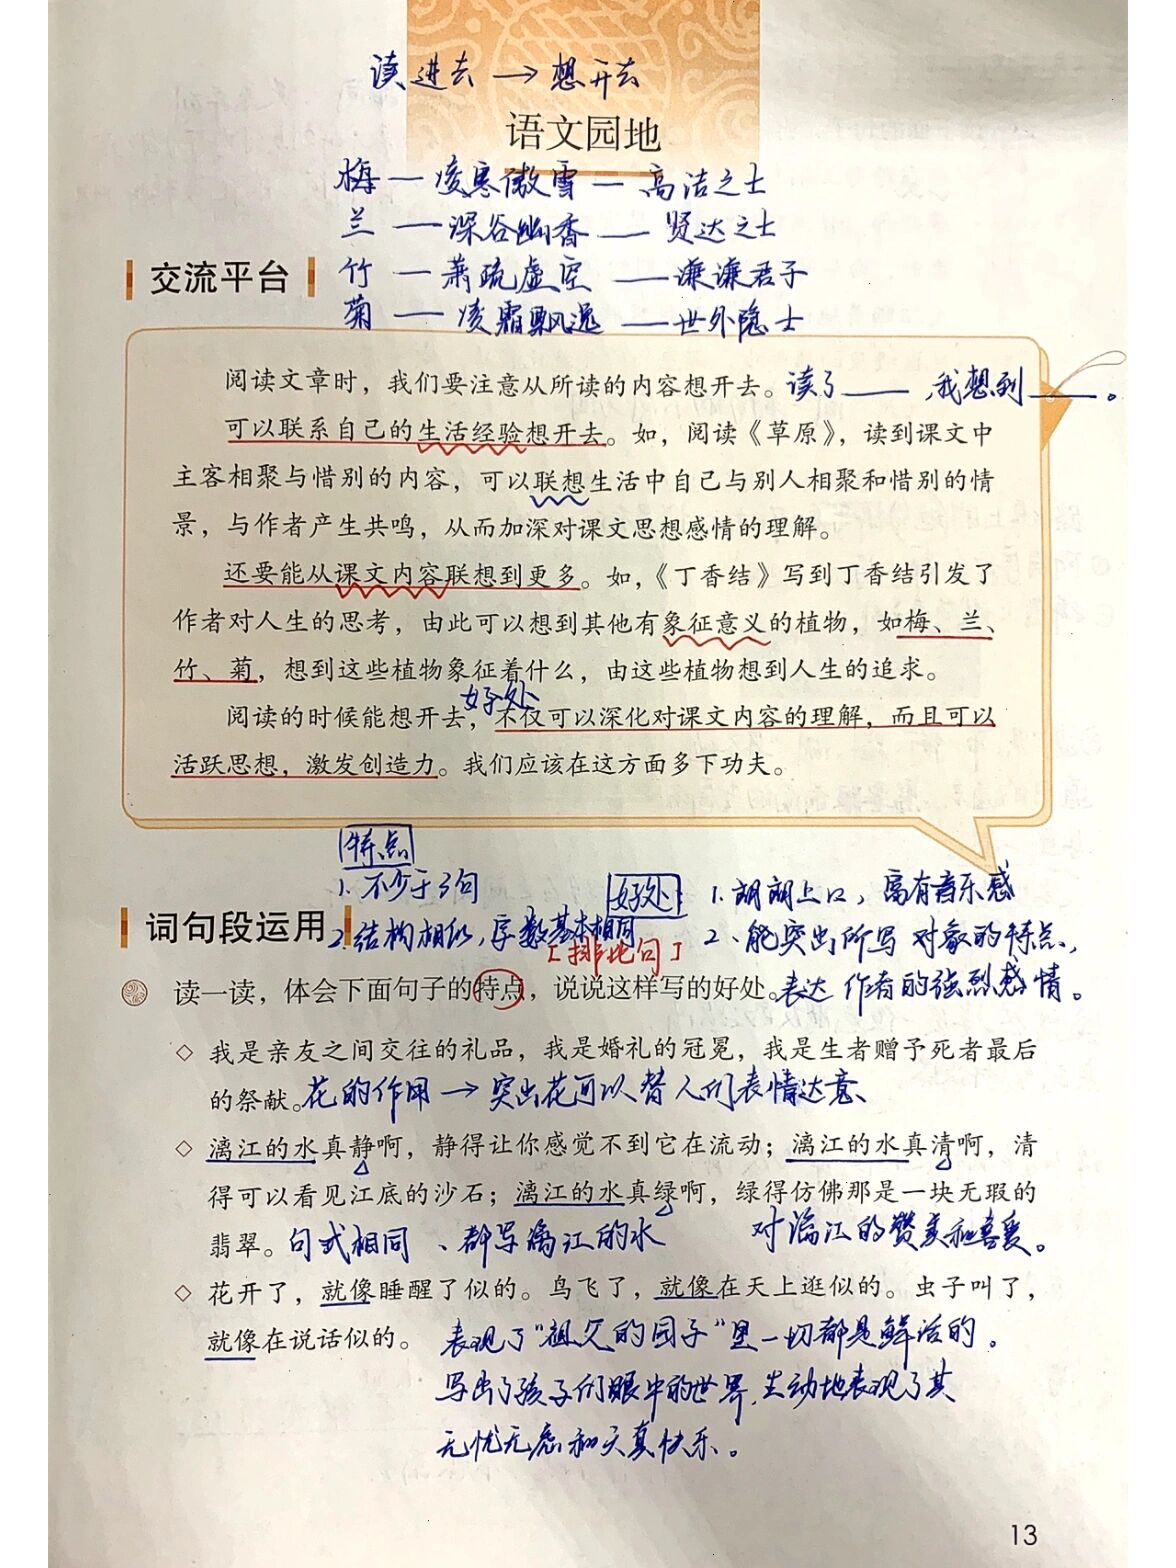 读进去→想开去
语文园地
梅—凌寒傲雪—高洁之士
兰—深谷幽香—贤达之士
交流平台
竹—萧疏虚空—谦谦君子
菊—凌霜飘逸—世外隐士
阅读文章时，我们要注意从所读的内容想开去。读了——，我想到——。
可以联系自己的生活经验想开去。如，阅读《草原》，读到课文中
主客相聚与惜别的内容，可以联想生活中自己与别人相聚和惜别的情
景，与作者产生共鸣，从而加深对课文思想感情的理解。
还要能从课文内容联想到更多。如，《丁香结》写到丁香结引发了
作者对人生的思考，由此可以想到其他有象征意义的植物，如梅、兰、
竹、菊，想到这些植物象征着什么，由这些植物想到人生的追求。
好处
阅读的时候能想开去，不仅可以深化对课文内容的理解，而且可以
活跃思想，激发创造力。我们应该在这方面多下功夫。
特点
1. 不少于3句
好处
1. 朗朗上口，富有音乐感
词句段运用
2. 结构相似，字数基本相同
2、能突出所写对象的特点，
[排比句]
读一读，体会下面句子的特点，说说这样写的好处。表达作者的强烈感情。
◇ 我是亲友之间交往的礼品，我是婚礼的冠冕，我是生者赠予死者最后
的祭献。花的作用→突出花可以替人们表情达意、
◇ 漓江的水真静啊，静得让你感觉不到它在流动；漓江的水真清啊，清
得可以看见江底的沙石；漓江的水真绿啊，绿得仿佛那是一块无瑕的
翡翠。句式相同、都写漓江的水 对漓江的赞美和喜爱。
◇ 花开了，就像睡醒了似的。鸟飞了，就像在天上逛似的。虫子叫了，
就像在说话似的。表现了“祖父的园子”里一切都是鲜活的。
写出了孩子们眼中的世界，生动地表现了其
无忧无虑和天真快乐。
13